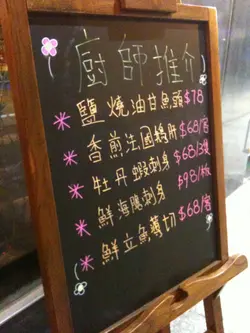 廚師推介
鹽燒油甘魚頭 $78
香煎法國鵝肝 $68/客
牡丹蝦刺身 $68/3隻
鮮海膽刺身 $98/板
鮮立魚薄切 $68/客